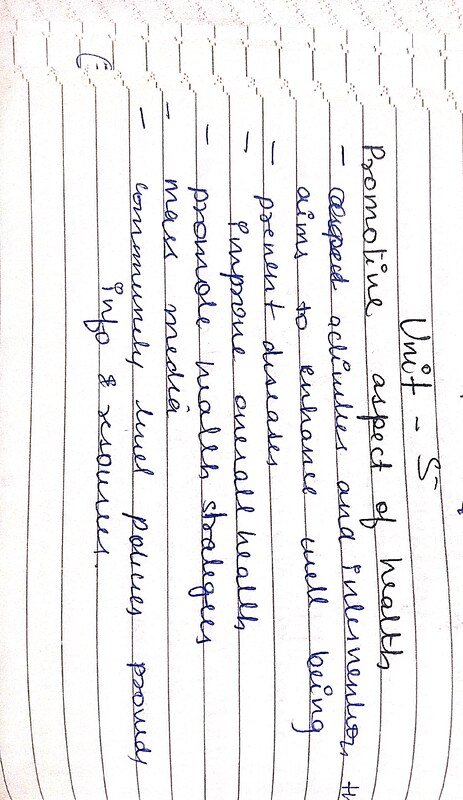 Unit - 5
Promotive aspect of health
- aspect activities and interventions th
aims to enhance well being
- prevent diseases
- improve overall health
- promote health strategies
- mass media
- community level policies provides
info & resources.